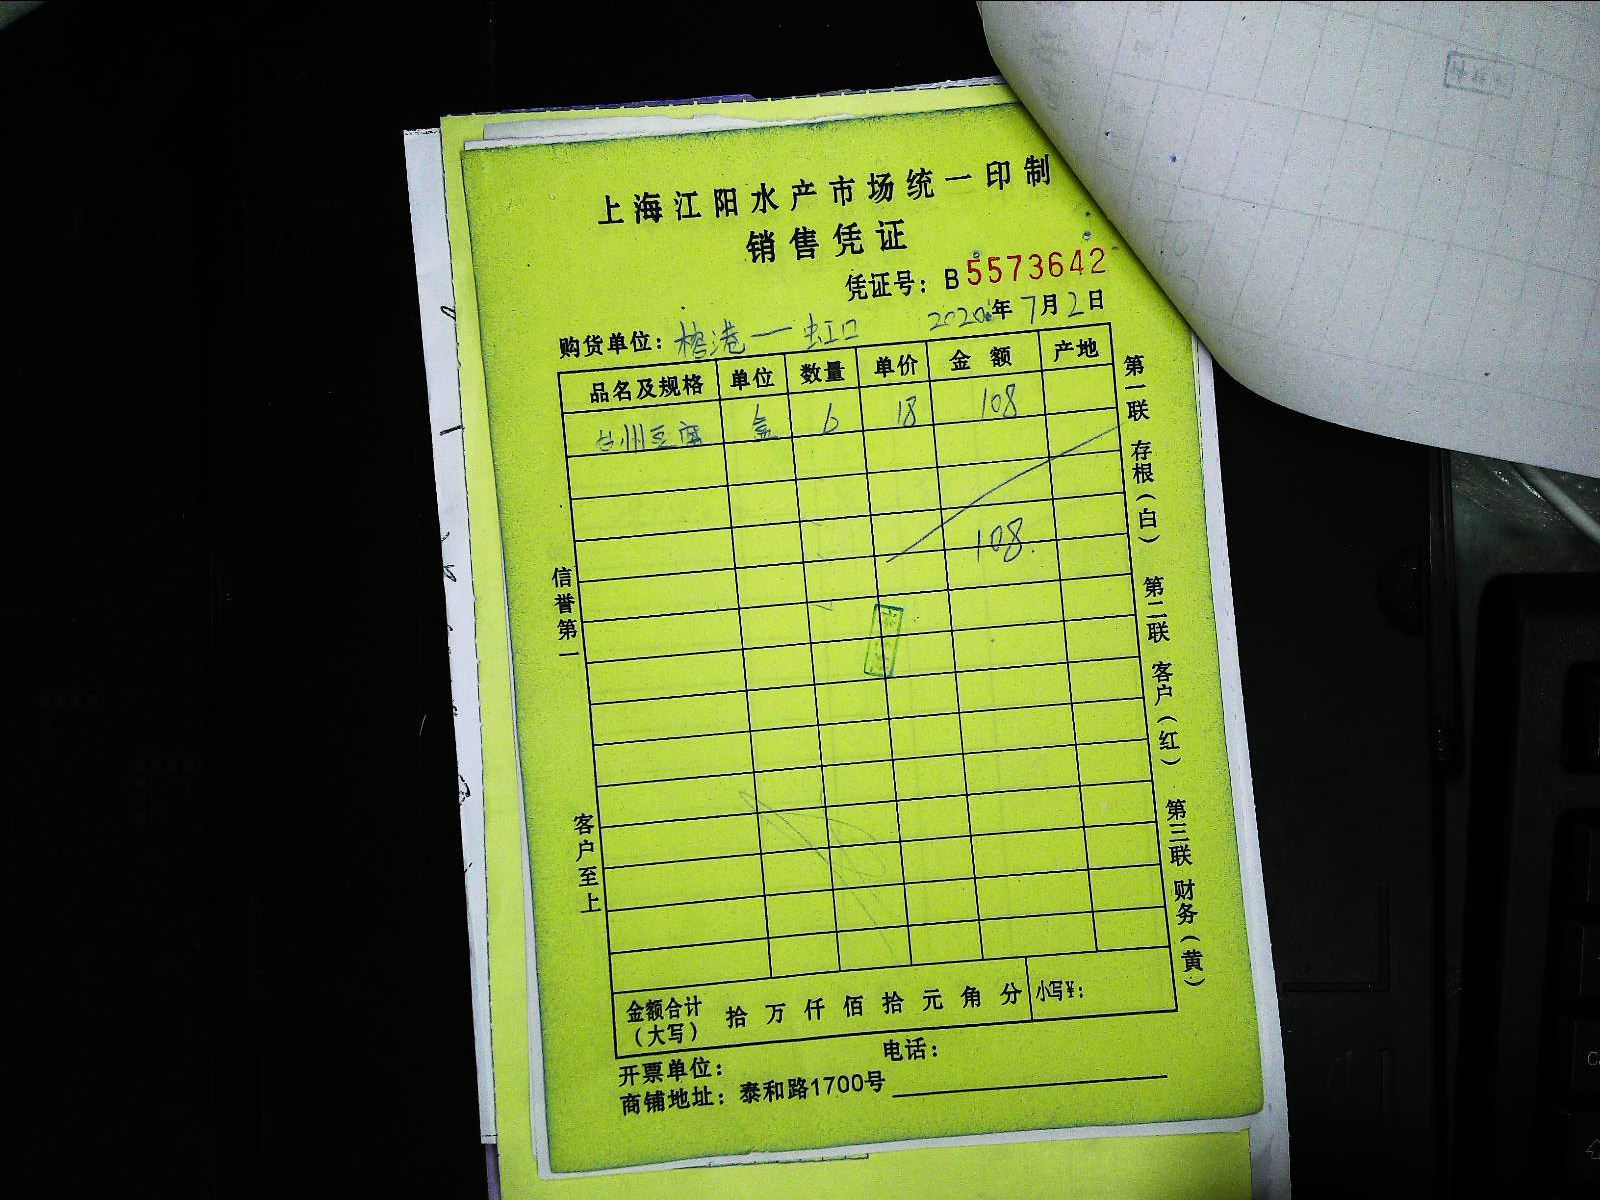 上海江阳水产市场统一印制
销售凭证
凭证号：B5573642
购货单位：榕港一虹口 2020年7月2日
品名及规格 单位 数量 单价 金额 产地
台州豆腐 盒 6 18 108
108.
信誉第一
客户至上
第一联 存根（白） 第二联 客户（红） 第三联 财务（黄）
金额合计（大写） 拾万仟佰拾元角分 小写¥：
开票单位： 电话：
商铺地址：泰和路1700号